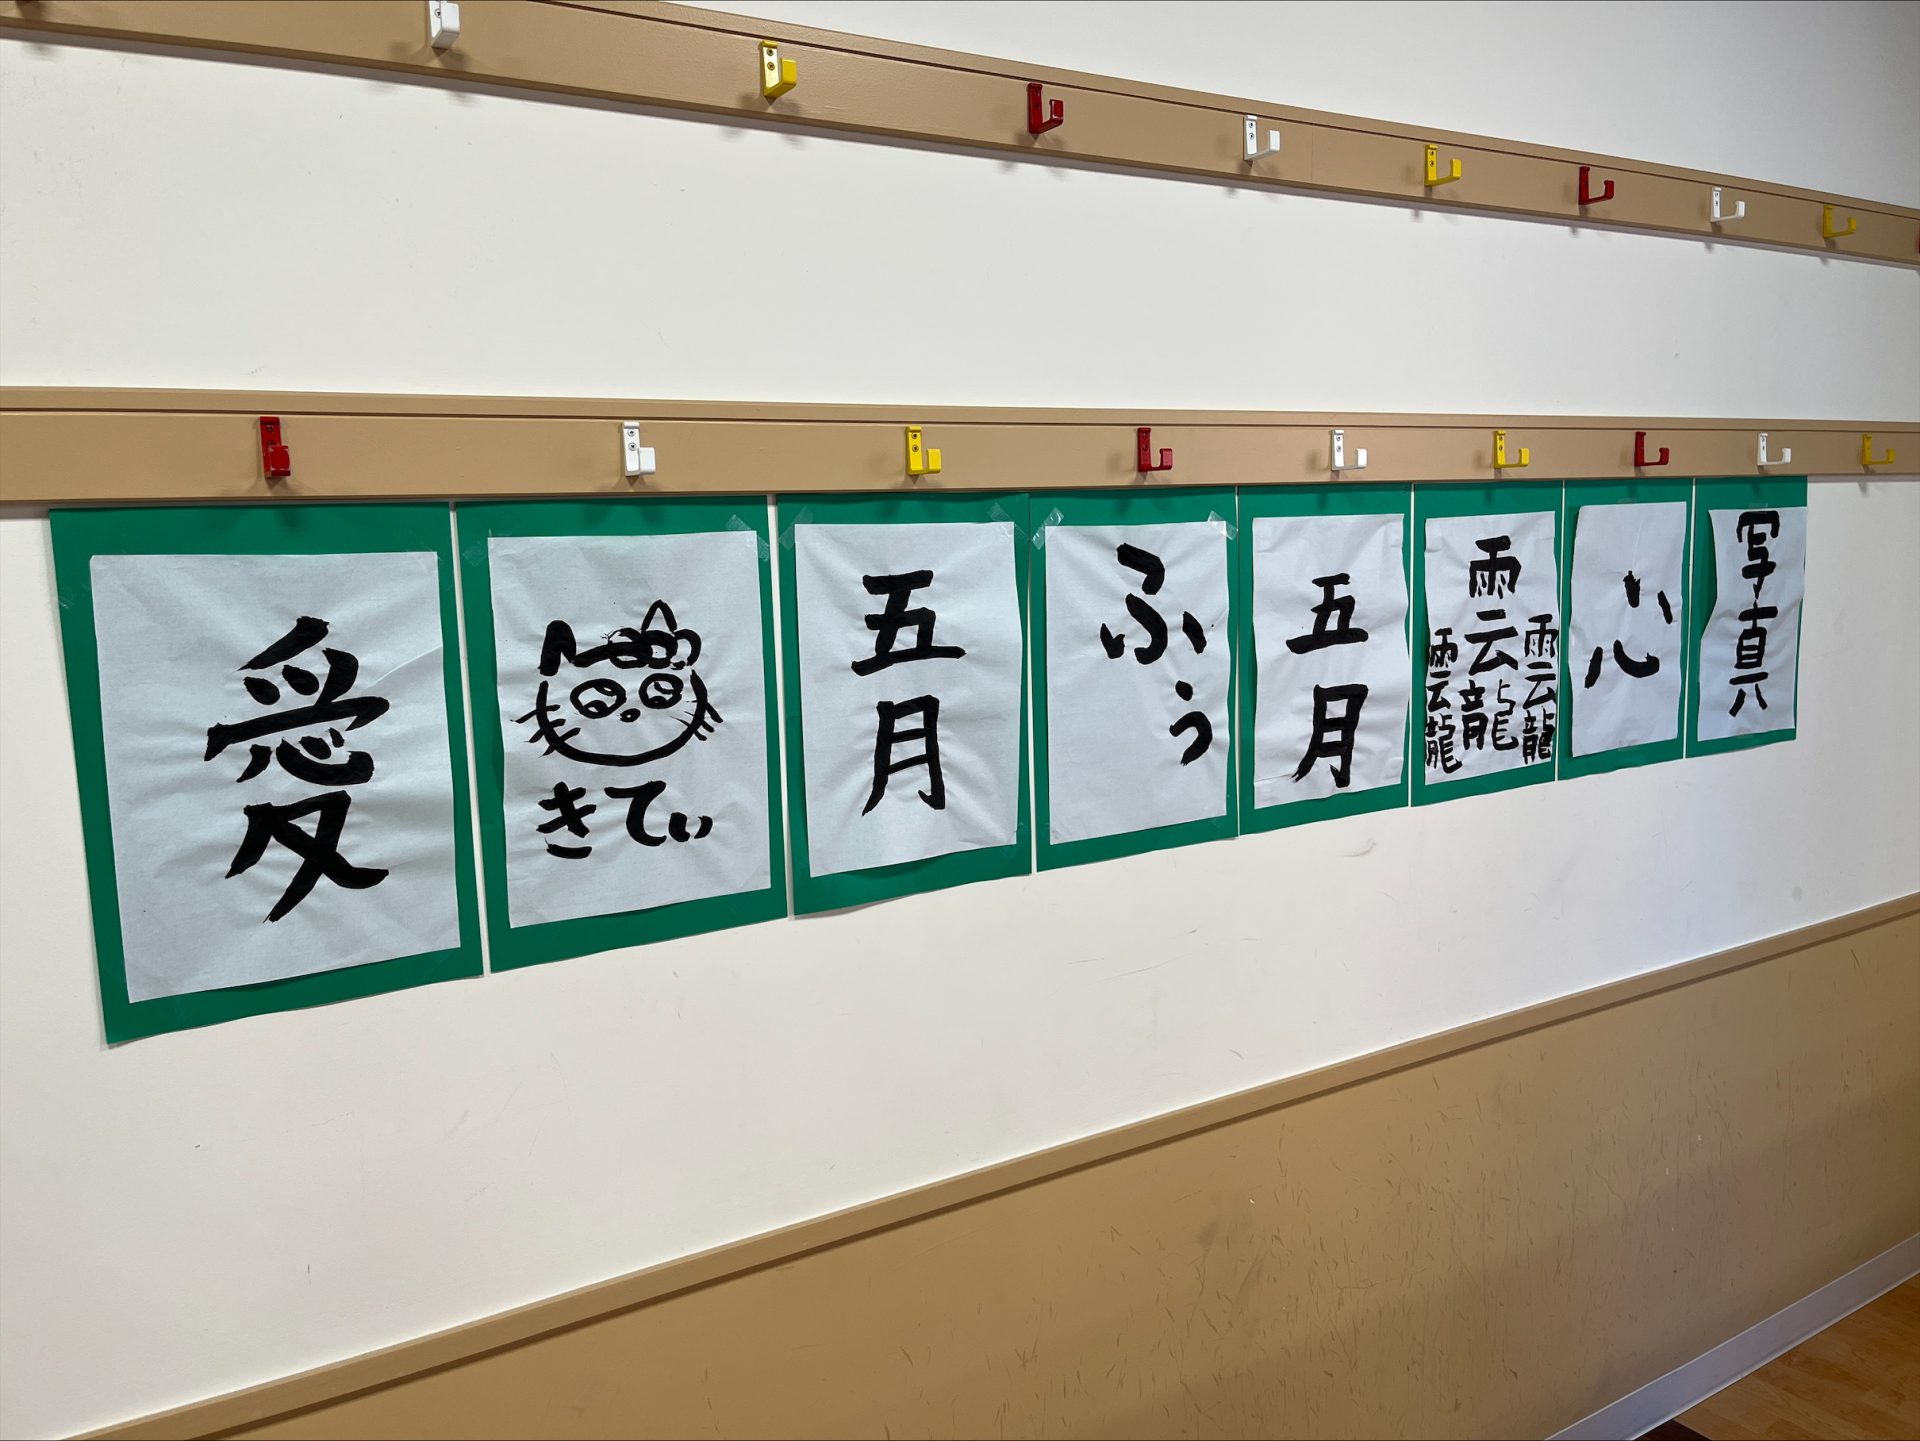 愛
きてぃ
五月
ふぅ
五月
雲
雲龍
雲龍
龍
心
写真